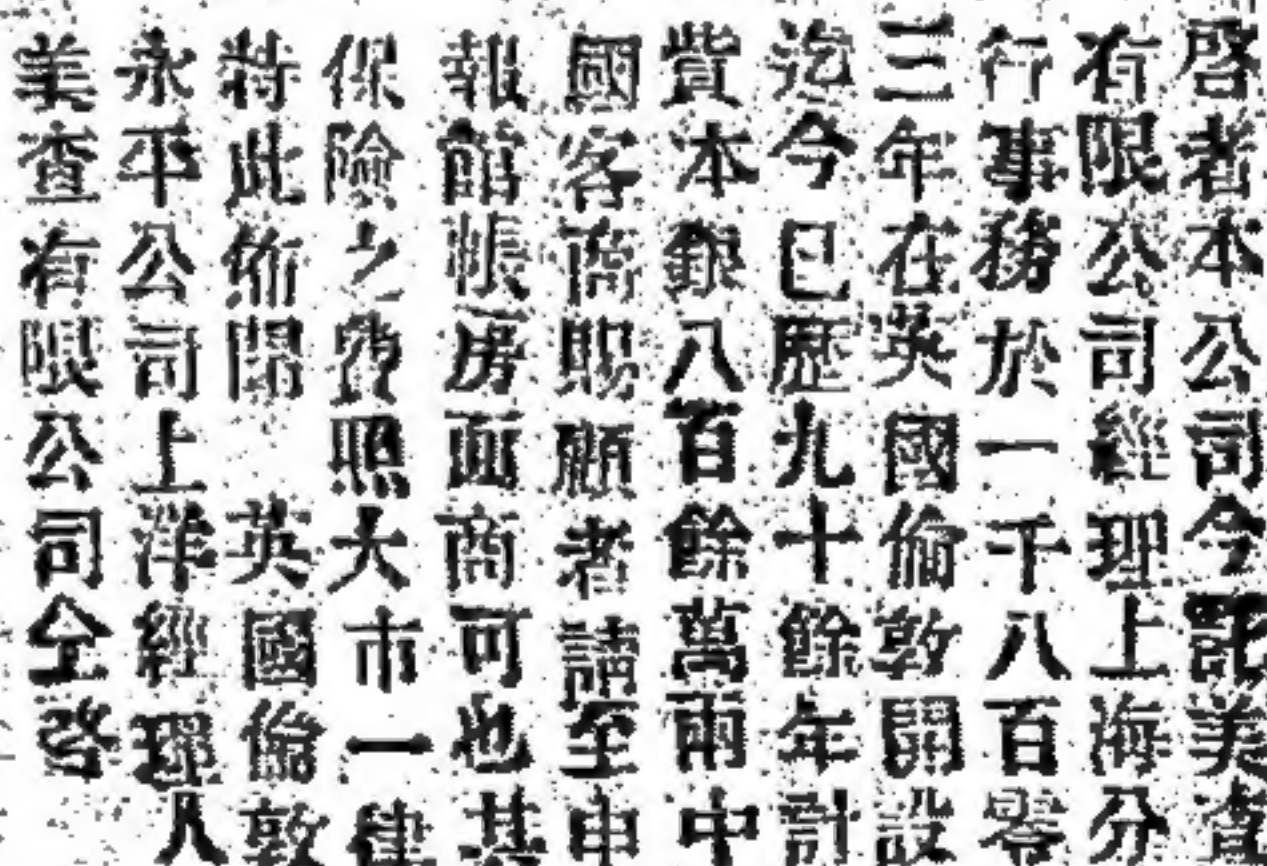 啓者本公司今託美查
有限公司經理上海分
行事務於一千八百零
三年在英國倫敦開設
迄今已歷九十餘年計
貲本銀八百餘萬兩中
國客商賜顧者請至申
報館帳房面商可也其
保險之費照大市一律
特此佈聞　英國倫敦
永平公司上洋經理人
美查有限公司仝啓